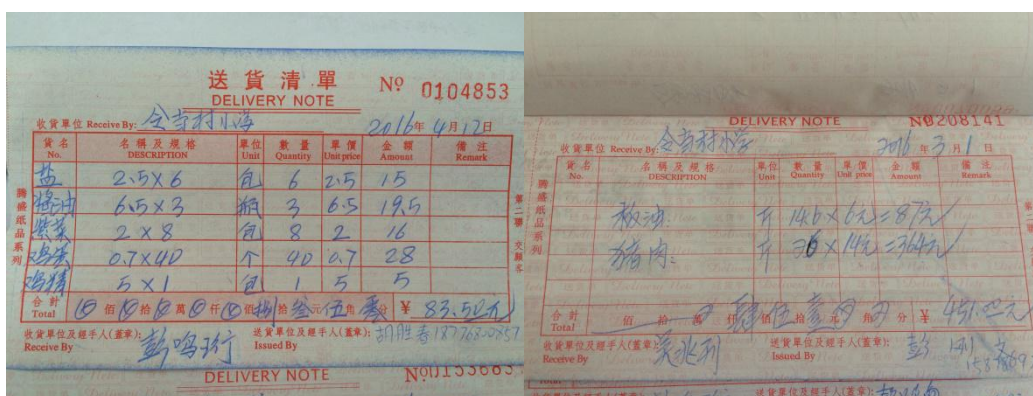 送貨清單
DELIVERY NOTE
Nº 0104853
收貨單位 Receive By: 村小学
2016年 4月12日
貨名 No. 名稱及規格 DESCRIPTION 單位 Unit 數量 Quantity 單價 Unit price 金額 Amount 備注 Remark
盐 2.5×6 包 6 2.5 15
酱油 6.5×3 瓶 3 6.5 19.5
紫菜 2×8 包 8 2 16
鸡蛋 0.7×40 个 40 0.7 28
鸡精 5×1 包 1 5 5
合計 Total 佰 拾 萬 仟 佰 捌拾叁元伍角 分 ¥ 83.50元
收貨單位及經手人(蓋章): Receive By 彭鸣珩
送貨單位及經手人(蓋章): Issued By 胡胜春
騰盛纸品系列
第二聯 交顧客
DELIVERY NOTE
DELIVERY NOTE
Nº0208141
收貨單位 Receive By: 村小学
2016年3月1日
貨名 No. 名稱及規格 DESCRIPTION 單位 Unit 數量 Quantity 單價 Unit price 金額 Amount 備注 Remark
板油: 斤 14.6×6元=87元
猪肉: 斤 26×14元=364元
合計 Total 佰 拾 萬 仟 肆佰伍拾壹元 角 分 ¥ 451.00元
收貨單位及經手人(蓋章): Receive By
送貨單位及經手人(蓋章): Issued By 彭
騰盛纸品系列